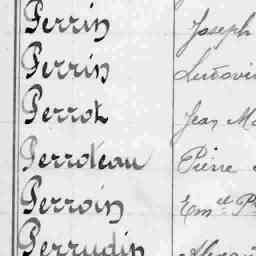 Perrin Joseph
Perrin Ludovi
Perrot Jean Ma
Perroteau Pierre
Perroin Em el P
Perrudin Alexan